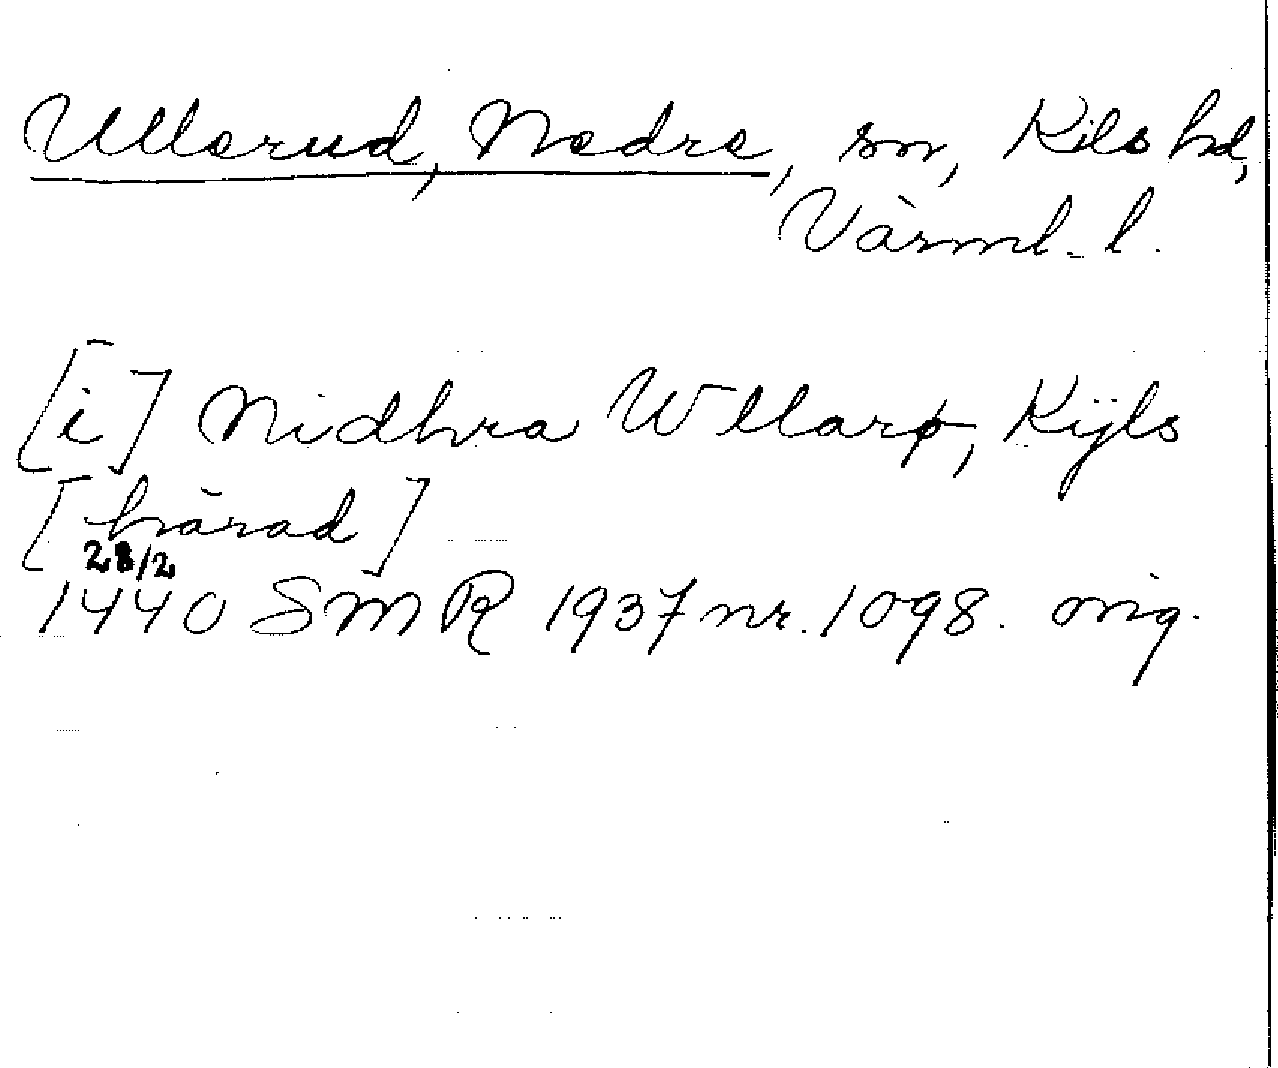 Ullerud, Nedre, sn, Kils hd,
Värml. l.
[i] Nidhra Wllarp, Kijls
[härad]
28/2
1440 SMR 1937 nr. 1098. orig.